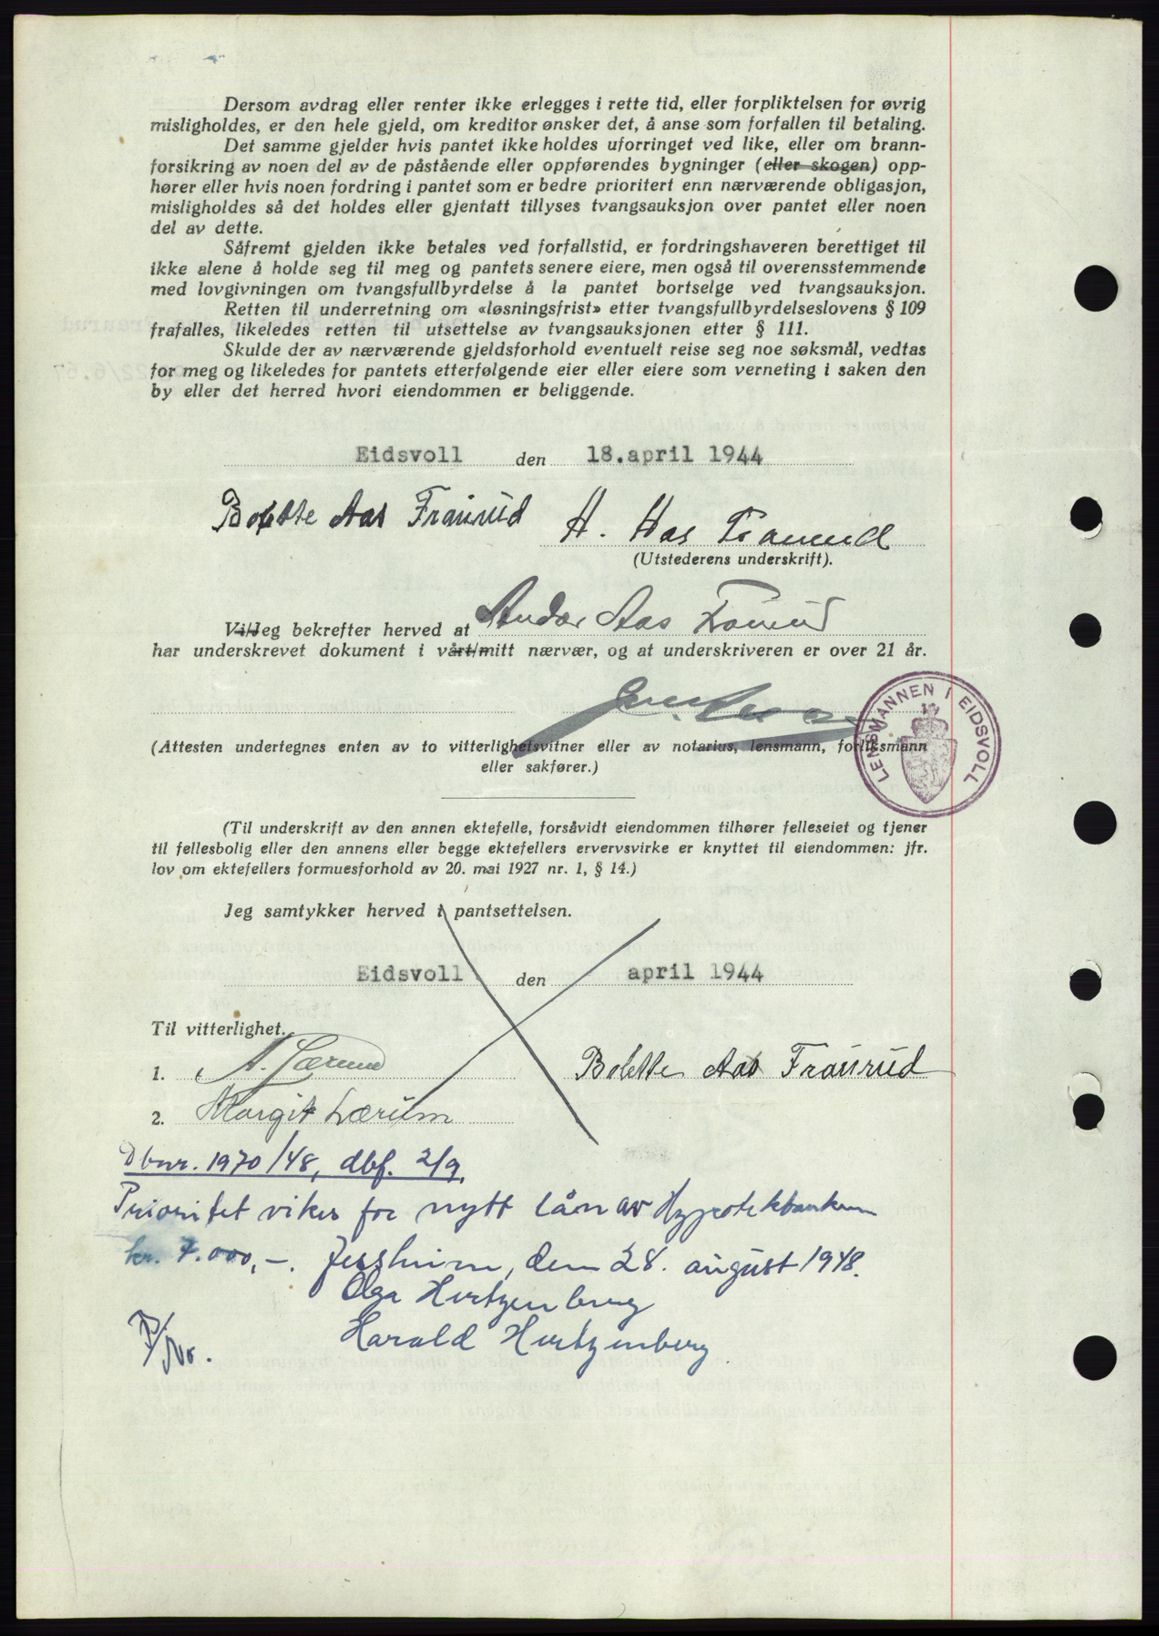 Dersom avdrag eller renter ikke erlegges i rette tid, eller forpliktelsen for øvrig
misligholdes, er den hele gjeld, om kreditor ønsker det, å anse som forfallen til betaling.
Det samme gjelder hvis pantet ikke holdes uforringet ved like, eller om brann-
forsikring av noen del av de påstående eller oppførendes bygninger (eller skogen) opp-
hører eller hvis noen fordring i pantet som er bedre prioritert enn nærværende obligasjon,
misligholdes så det holdes eller gjentatt tillyses tvangsauksjon over pantet eller noen
del av dette.
Såfremt gjelden ikke betales ved forfallstid, er fordringshaveren berettiget til
ikke alene å holde seg til meg og pantets senere eiere, men også til overensstemmende
med lovgivningen om tvangsfullbyrdelse å la pantet bortselge ved tvangsauksjon.
Retten til underretning om «løsningsfrist» etter tvangsfullbyrdelseslovens § 109
frafalles, likeledes retten til utsettelse av tvangsauksjonen etter § 111.
Skulde der av nærværende gjeldsforhold eventuelt reise seg noe søksmål, vedtas
for meg og likeledes for pantets etterfølgende eier eller eiere som verneting i saken den
by eller det herred hvori eiendommen er beliggende.
Eidsvoll den 18.april 1944
Bolette Aas Fraurud H. Aas Fraurud
(Utstederens underskrift).
Vi/Jeg bekrefter herved at Andor Aas Fraurud
har underskrevet dokument i vårt/mitt nærvær, og at underskriveren er over 21 år.
LENSMANNEN I EIDSVOLL
(Attesten undertegnes enten av to vitterlighetsvitner eller av notarius, lensmann, forliksmann
eller sakfører.)
(Til underskrift av den annen ektefelle, forsåvidt eiendommen tilhører felleseiet og tjener
til fellesbolig eller den annens eller begge ektefellers ervervsvirke er knyttet til eiendommen: jfr.
lov om ektefellers formuesforhold av 20. mai 1927 nr. 1, § 14.)
Jeg samtykker herved i pantsettelsen.
Eidsvoll den april 1944
Til vitterlighet.
1. A. Lærum Bolette Aas Fraurud
2. Margit Lærum
Dbnr. 1970/48, dbf. 2/9.
Prioritet vikes for nytt lån av Hypotekbanken
kr. 7.000,-. Jessheim, den 28. august 1948.
Olga Hertzenberg
Harald Hertzenberg